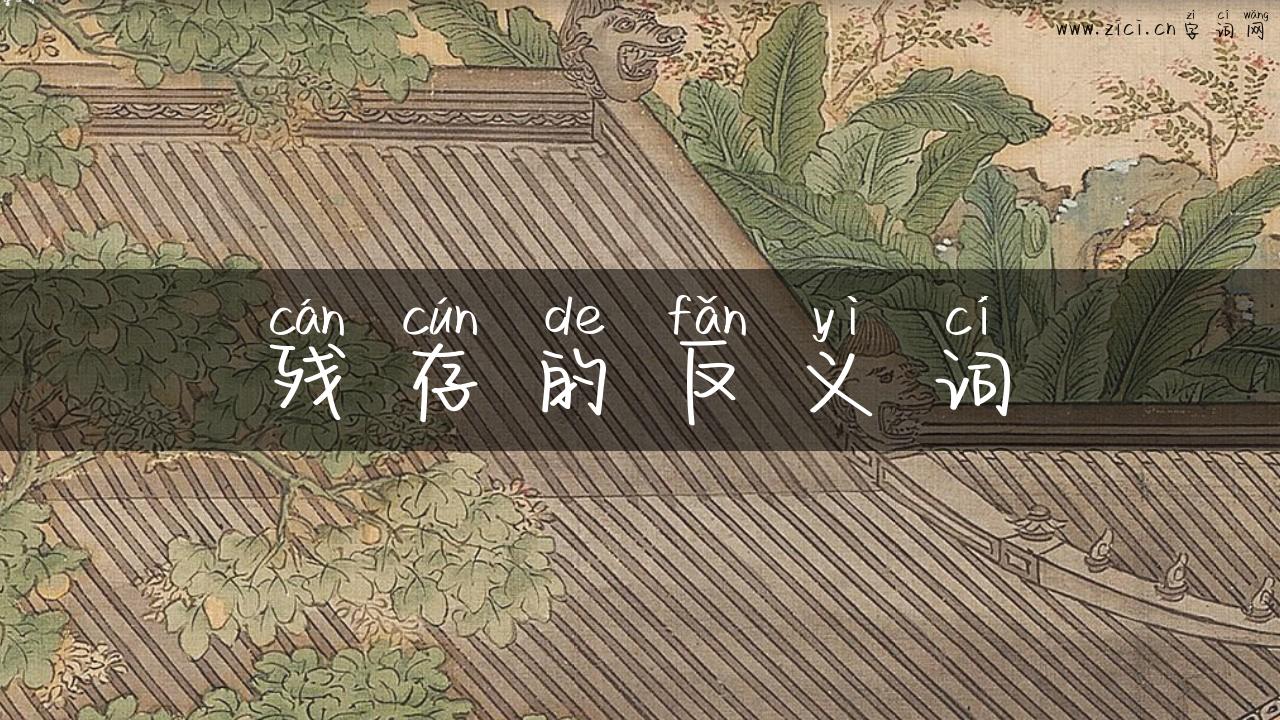 zì cí wǎng
www.zici.cn 字词网
cán cún de fǎn yì cí
残存的反义词